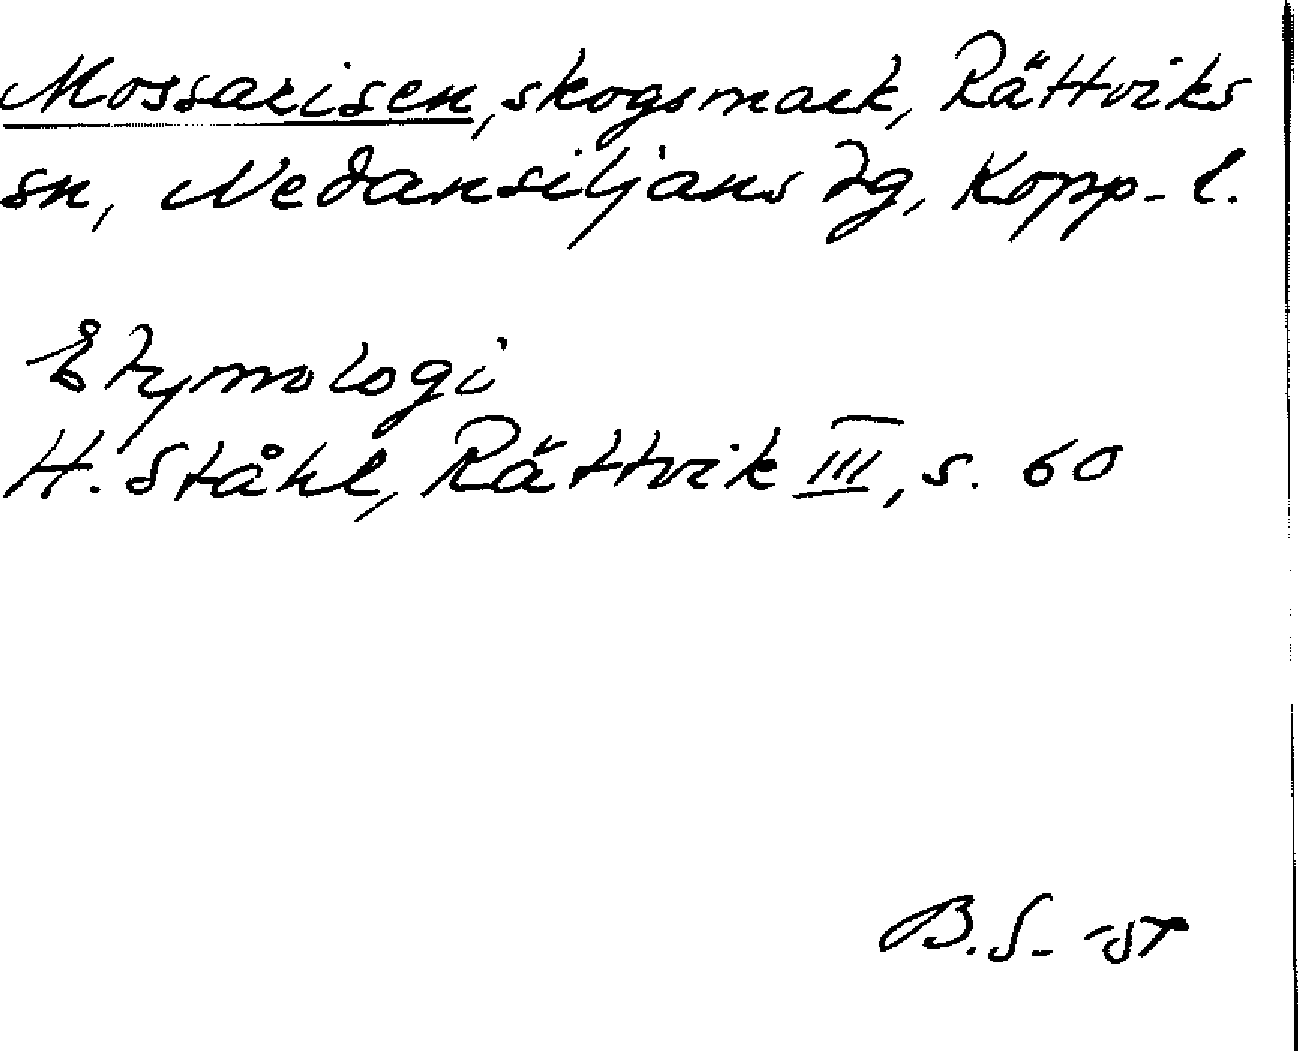 Mossarisen, skogsmark, Rättviks
sn, Nedansiljans tg, Kopp. l.
Etymologi
H. Ståhl, Rättvik III, s. 60
B.S-st